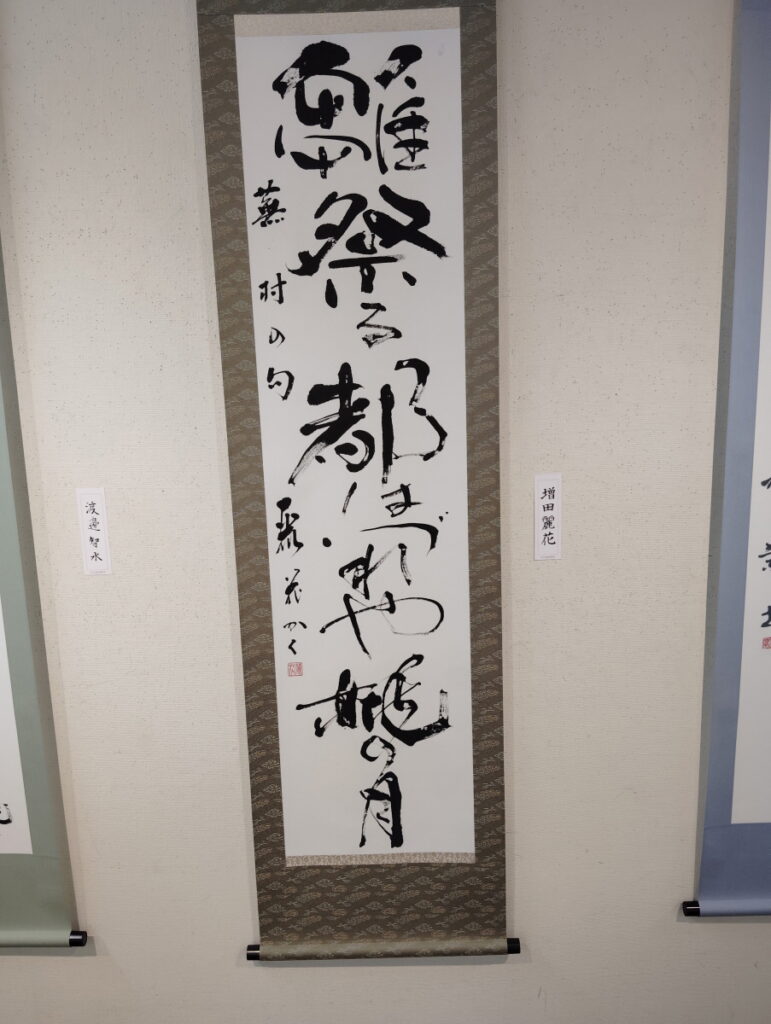 雛祭る都はづれや桃の月
蕪村の句
麗花かく
増田麗花
渡邊智水